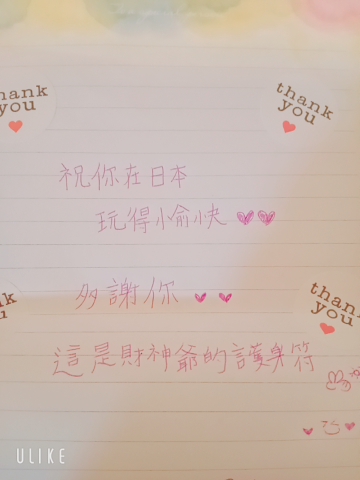 thank you
thank you
祝你在日本
玩得愉快
多謝你
thank you
這是財神爺的護身符
ULIKE